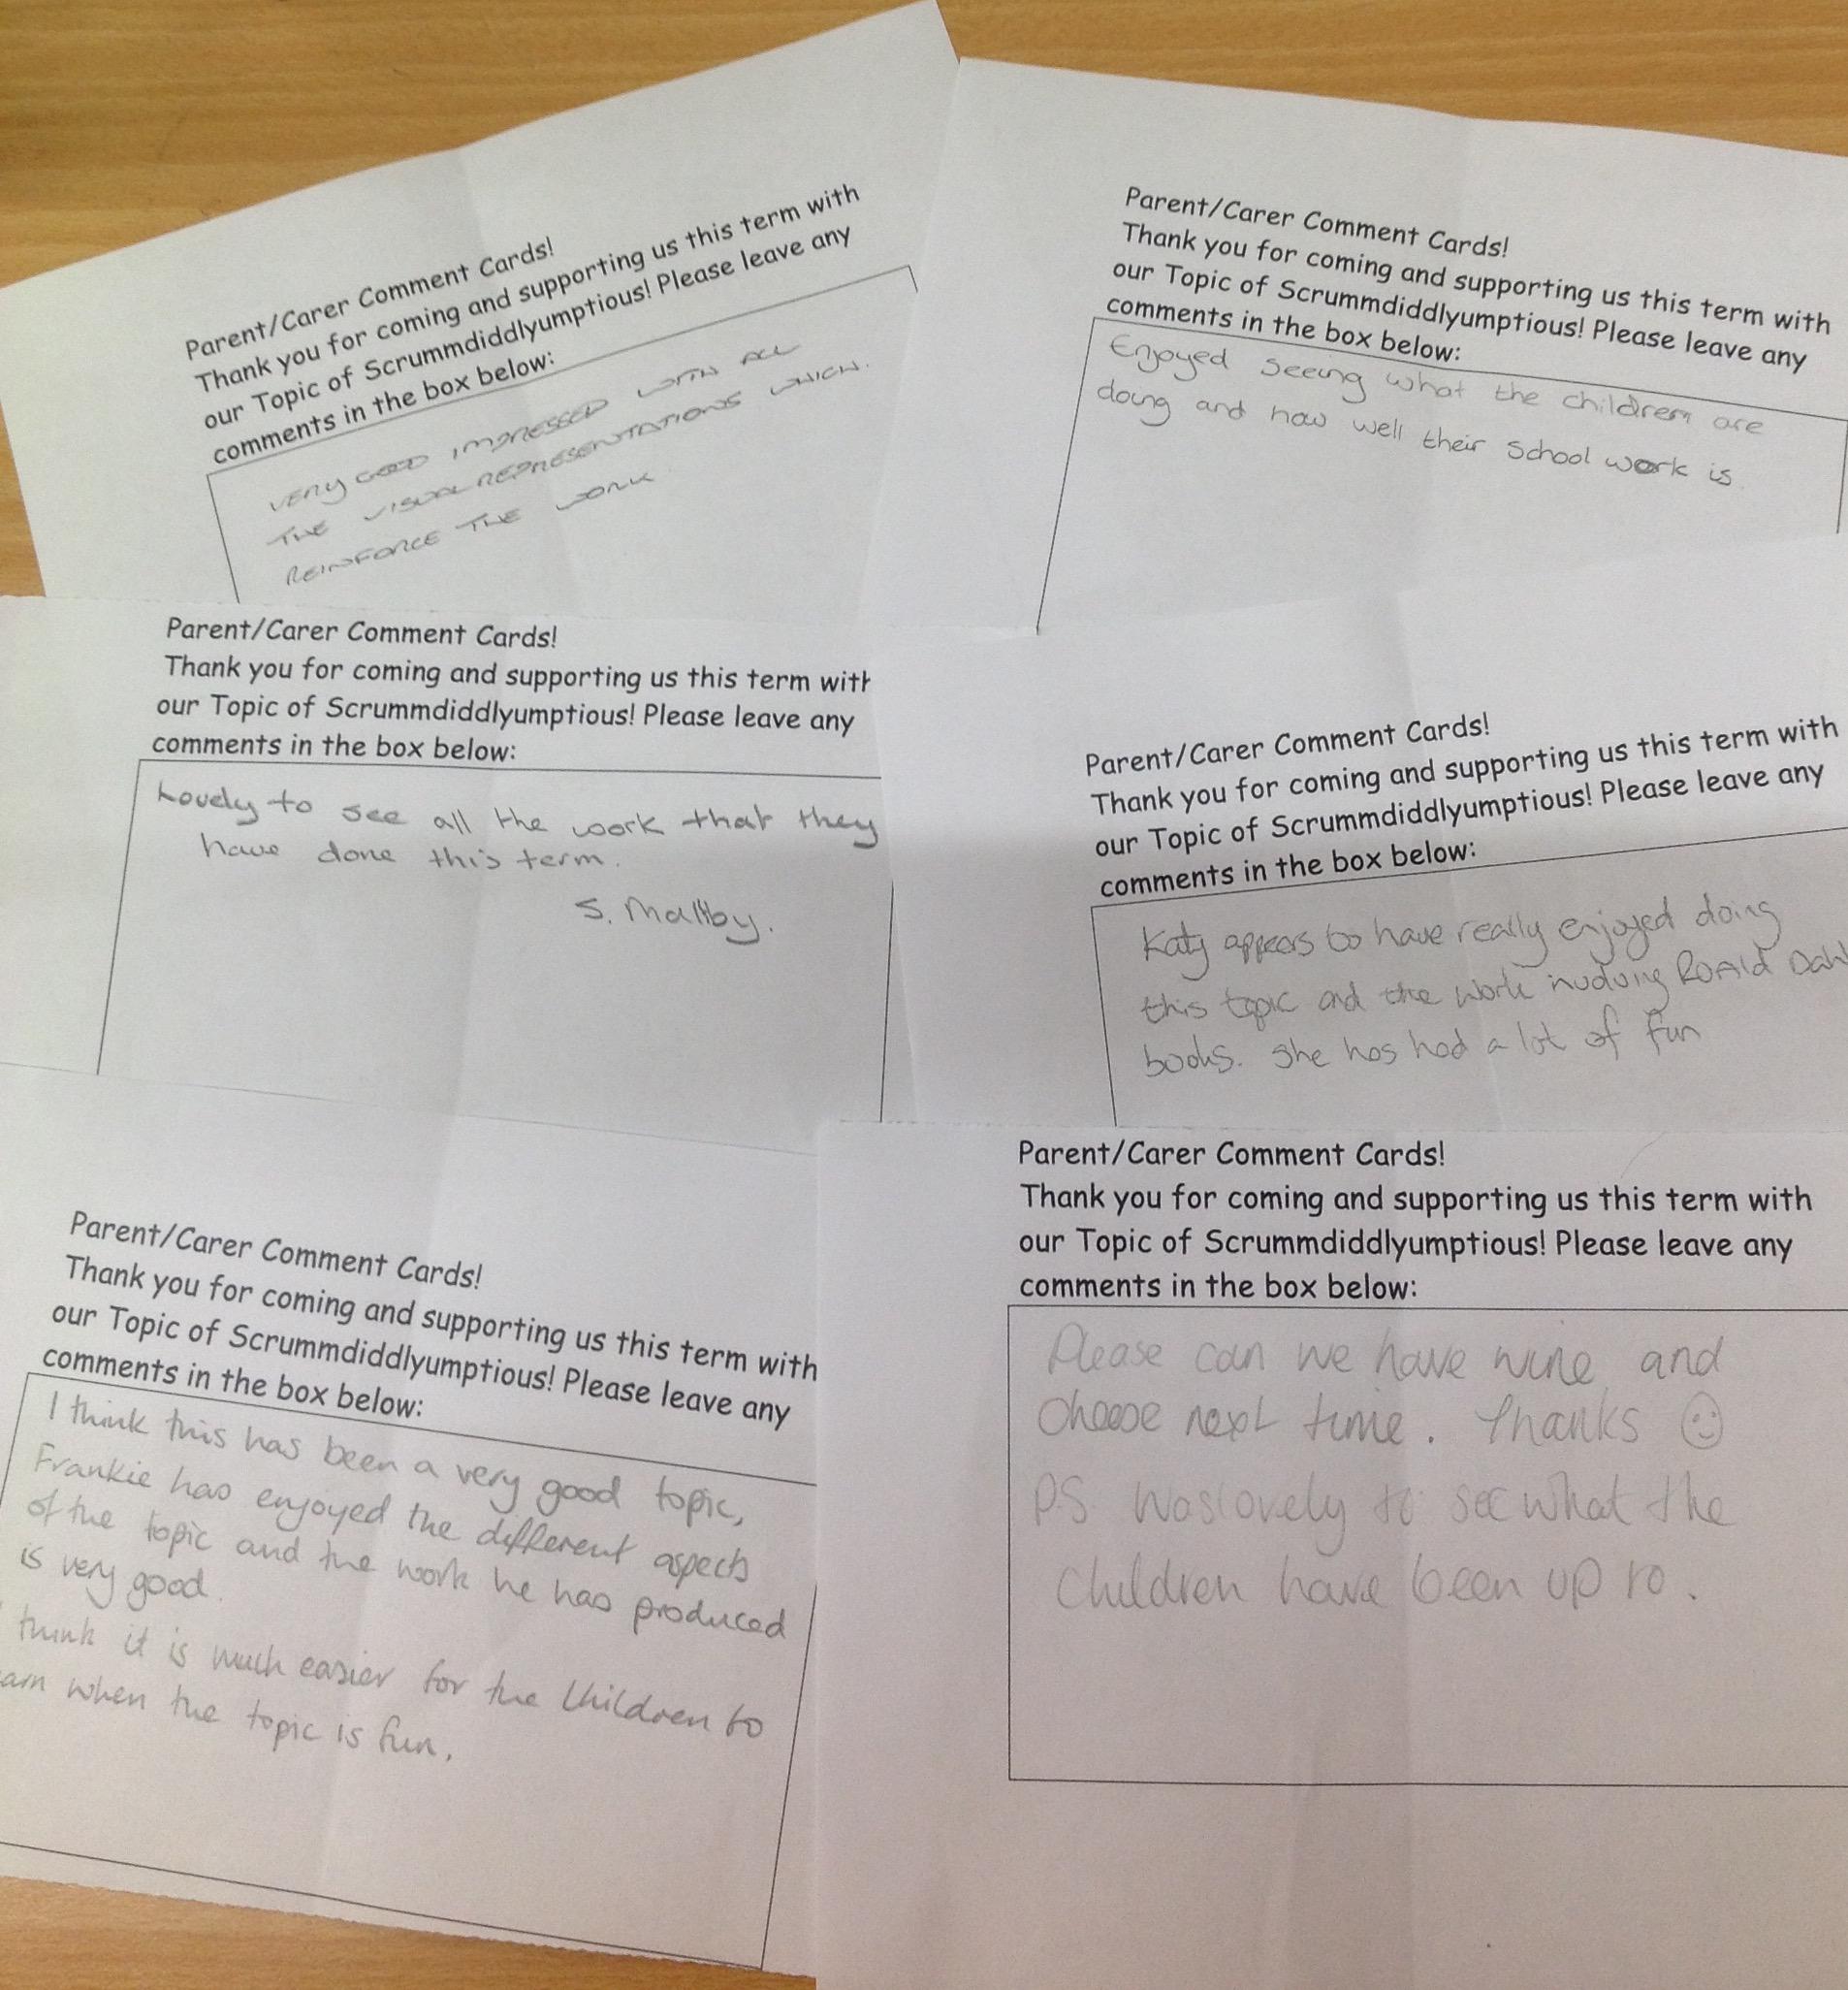 Parent/Carer Comment Cards!
Thank you for coming and supporting us this term with
our Topic of Scrummdiddlyumptious! Please leave any
comments in the box below:
VERY GOOD IMPRESSED WITH ALL
THE VISUAL REPRESENTATIONS WHICH.
REINFORCE THE WORK
Parent/Carer Comment Cards!
Thank you for coming and supporting us this term with
our Topic of Scrummdiddlyumptious! Please leave any
comments in the box below:
Enjoyed seeing what the children are
doing and how well their school work is
Parent/Carer Comment Cards!
Thank you for coming and supporting us this term with
our Topic of Scrummdiddlyumptious! Please leave any
comments in the box below:
Lovely to see all the work that they
have done this term.
S. Maltby.
Parent/Carer Comment Cards!
Thank you for coming and supporting us this term with
our Topic of Scrummdiddlyumptious! Please leave any
comments in the box below:
Katy appears to have really enjoyed doing
this topic and the work Roald Dahl
books. She has had a lot of fun
Parent/Carer Comment Cards!
Thank you for coming and supporting us this term with
our Topic of Scrummdiddlyumptious! Please leave any
comments in the box below:
I think this has been a very good topic,
Frankie has enjoyed the different aspects
of the topic and the work he has produced
is very good.
think it is much easier for the children to
earn when the topic is fun.
Parent/Carer Comment Cards!
Thank you for coming and supporting us this term with
our Topic of Scrummdiddlyumptious! Please leave any
comments in the box below:
Please can we have wine and
cheese next time. Thanks ☺
P.S. Was lovely to see what the
children have been up to.